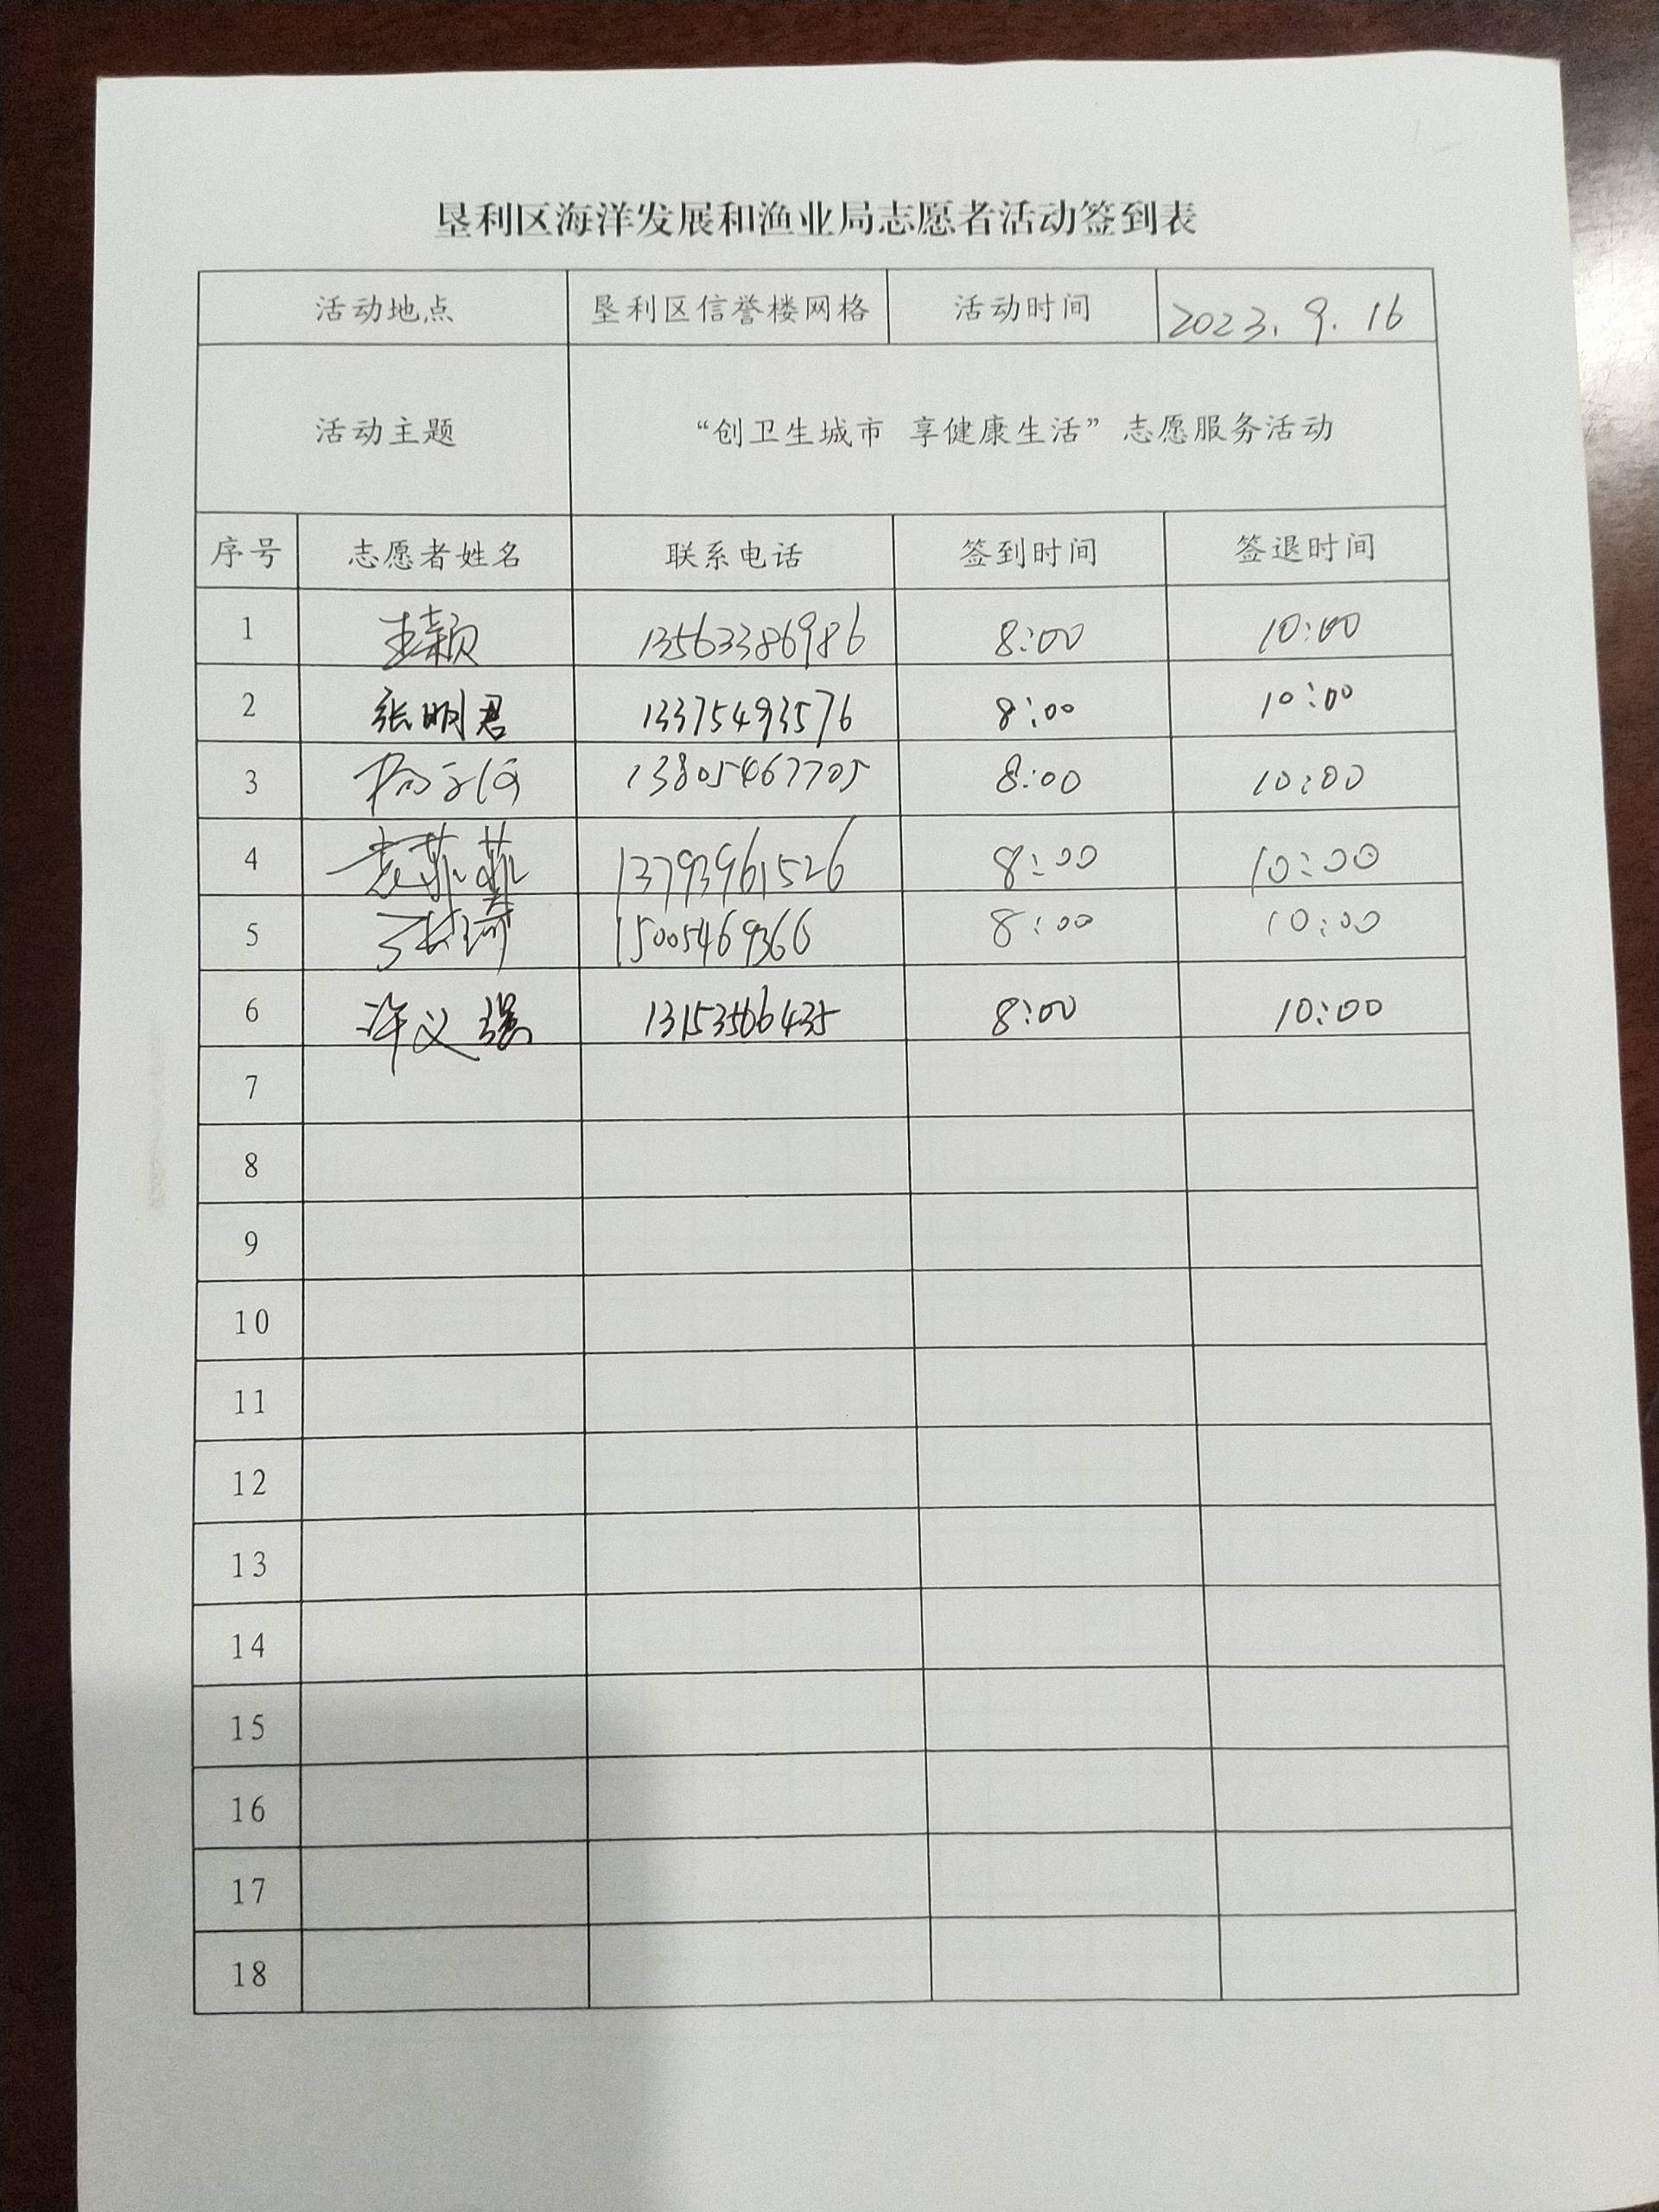 垦利区海洋发展和渔业局志愿者活动签到表
活动地点 垦利区信誉楼网格 活动时间 2023.9.16
活动主题 “创卫生城市 享健康生活”志愿服务活动
序号 志愿者姓名 联系电话 签到时间 签退时间
1 王颖 13563386986 8:00 10:00
2 张明君 13375493576 8:00 10:00
3 13805467705 8:00 10:00
4 袁菲菲 13793961526 8:00 10:00
5 15005469366 8:00 10:00
6 许义强 8:00 10:00
7
8
9
10
11
12
13
14
15
16
17
18